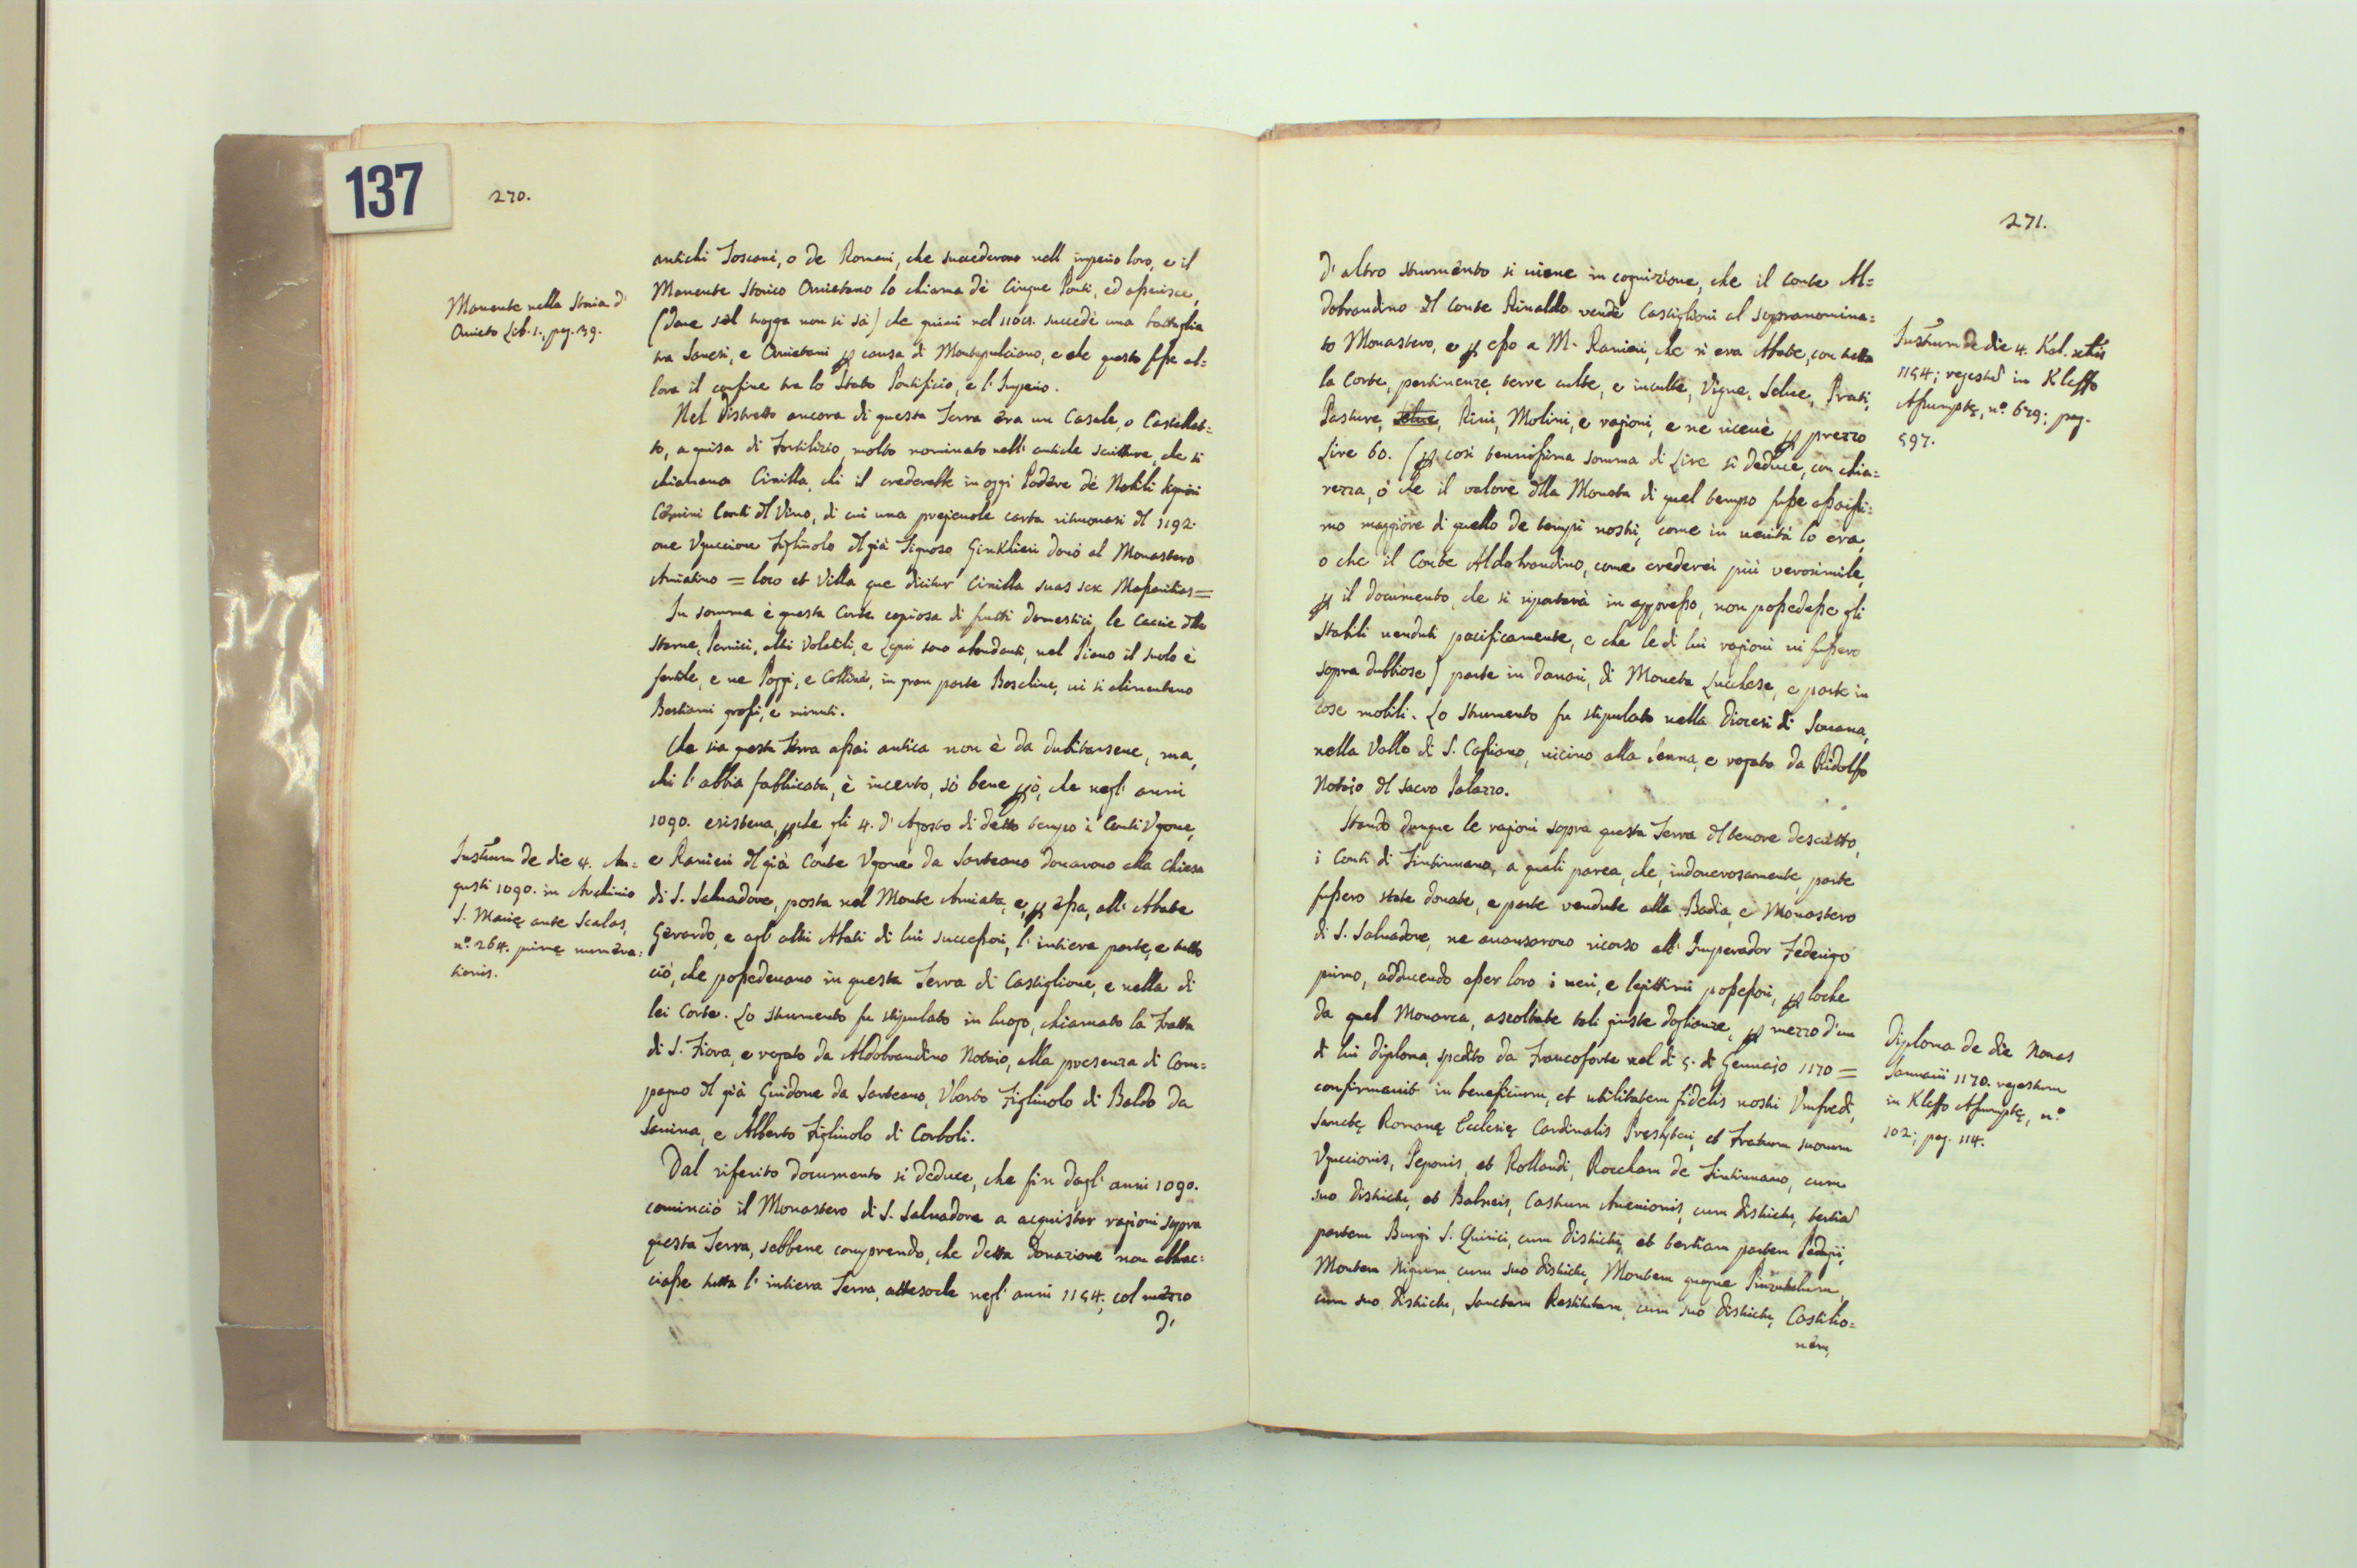 137
270.
antichi Toscani, o de Romani, che succederono nell imperio loro, e il
Manente nella Storia d'
Orvieto Lib. 1., pag. 39.
Manente Storico Orvietano lo chiama dè Cinque Ponti, ed asserisce,
(dove sèl tragga non si sà) che quivi nel succedè una battaglia
tra Sanesi, e Orvietani causa di Montepulciano, e che questo fosse al-
lora il confine tra lo Stato Pontificio, e l'Imperio.
Nel distretto ancora di questa Terra èra un Casale, o Castellet=
to, a guisa di Fortilizio, molto nominato nell' antiche scritture, che si
chiamava Cinilla, chi il crederebbe in oggi Podère dè Nobili Signori
Conti del Vivo, di cui una pregievole carta ritrovasi del 1192.
ove Uguccione Figliuolo del già Signose donò al Monastero
Amiatino = loco et Villa que dicitur Cinilla suas sex Massaritias =
In somma è questa Corte copiosa di frutti domestici, le Caccie delle
Starne, Pernici, altri Volatili, e Lepri sono abondanti, nel Piano il suolo è
fertile, e ne Poggi, e Colline, in gran parte Boschive, vi si alimentano
Bestiami grossi, e minuti.
Che sia questa Terra assai antica non è da dubitarsene, ma,
chi l'abbia fabbricata, è incerto, sò bene però, che negl' anni
1090. esisteva, perche gli 4. d'Agosto di detto tempo i Conti Ugone,
Instrum de die 4. Au=
gusti 1090. in Archivio
S. Marię ante Scalas,
nº. 264. primę numera=
tionis.
e Ranieri del già Conte Ugone da Sarteano donarono alla Chiesa
di S. Salvadore, posta nel Monte Amiata, e, per èssa, all' Abate
Gèrardo, e agl' altri Abati di lui successori, l'intiera parte, e tutto
ciò, che possedevano in questa Terra di Castiglione, e nella di
lei Corte. Lo Strumento fu stipulato in luogo, chiamato la Fratta
di S. Fiora, e rogato da Aldobrandino Notaio, alla presenza di Com=
pagno del già Guidone da Sarteano, Uberto Figliuolo di Baldo da
Sanina, e Alberto Figliuolo di Corboli.
Dal riferito documento si deduce, che fin dagl' anni 1090.
cominciò il Monastero di S. Salvadore a acquistar ragioni sopra
questa Terra, sebbene comprendo, che detta Donazione non abbrac=
ciasse tutta l'intiera Terra, attesoche negl' anni 1154; col mèzzo
d'
271.
d'altro strumènto si viene in cognizione, che il Conte Al=
dobrandino del Conte Rinaldo vendè Castiglioni al sopranomina=
to Monastero, e per esso a M. Ranieri, che n'era Abate, con tutta
Instrum de die 4. Kal.
1154; regestrũ in Kleffo
Assumptę, nº. 629; pag.
597.
la Corte, pertinenze, terre culte, e inculte, Vigne, Selve, Prati,
Pasture, selve, Rivi, Molini, e ragioni, e ne ricevè per prezzo
Lire 60. (per così tenuissima somma di Lire si deduce, con chia=
rezza, ò che il valore della Moneta di quel tempo fusse assaissi=
mo maggiore di quello de tempi nostri, come in verità lo era,
o che il Conte Aldobrandino, come crederei più verosimile,
per il documento, che si riporterà in appresso, non possedesse gli
Stabili venduti pacificamente, e che le di lui ragioni vi fussero
sopra dubbiose) parte in danari, di Moneta Lucchese, e parte in
cose mobili. Lo Strumento fu stipulato nella Diocesi di Soana,
nella Valle di S. Cassiano, vicino alla Senna, e rogato da Ridolfo
Notaio del Sacro Palazzo.
Stando dunque le ragioni sopra questa Terra del tenore descritto,
i Conti di Tintinnano, a quali parea, che, indoverosamente, parte
fussero state donate, e parte vendute alla Badia, e Monastero
di S. Salvadore, ne avansarono ricorso all' Imperador Federigo
primo, adducendo esser loro i veri, e legittimi possessori, per loche
da quel Monarca, ascoltate tali giuste doglianze, per mezzo d'un
di lui Diploma, spedito da Francoforte nel dì 5. di Gennajo 1170 =
Diploma de die Nonas
Januarii 1170. regestrum
in Kleffo Assumptę, nº
102; pag. 114.
confirmavit in beneficium, et utilitatem fidelis nostri Umfredi,
Sanctę Romanę Ecclesię Cardinalis Presbyteri, et Fratrum suorum
Uguccionis, Peponis, et Rollandi, Roccham de Tintinnano, cum
suo districtu, et Balneis, Castrum Avenionis, cum districtu, tertiã
partem Burgi S. Quirici, cum districtu, et tertiam partem Pedagii,
Montem Nigrum cum suo districtu, Montem quoque Pinzutulum,
cum suo districtu, Sanctam Restitutam, cum suo districtu, Castilio=
nèm,